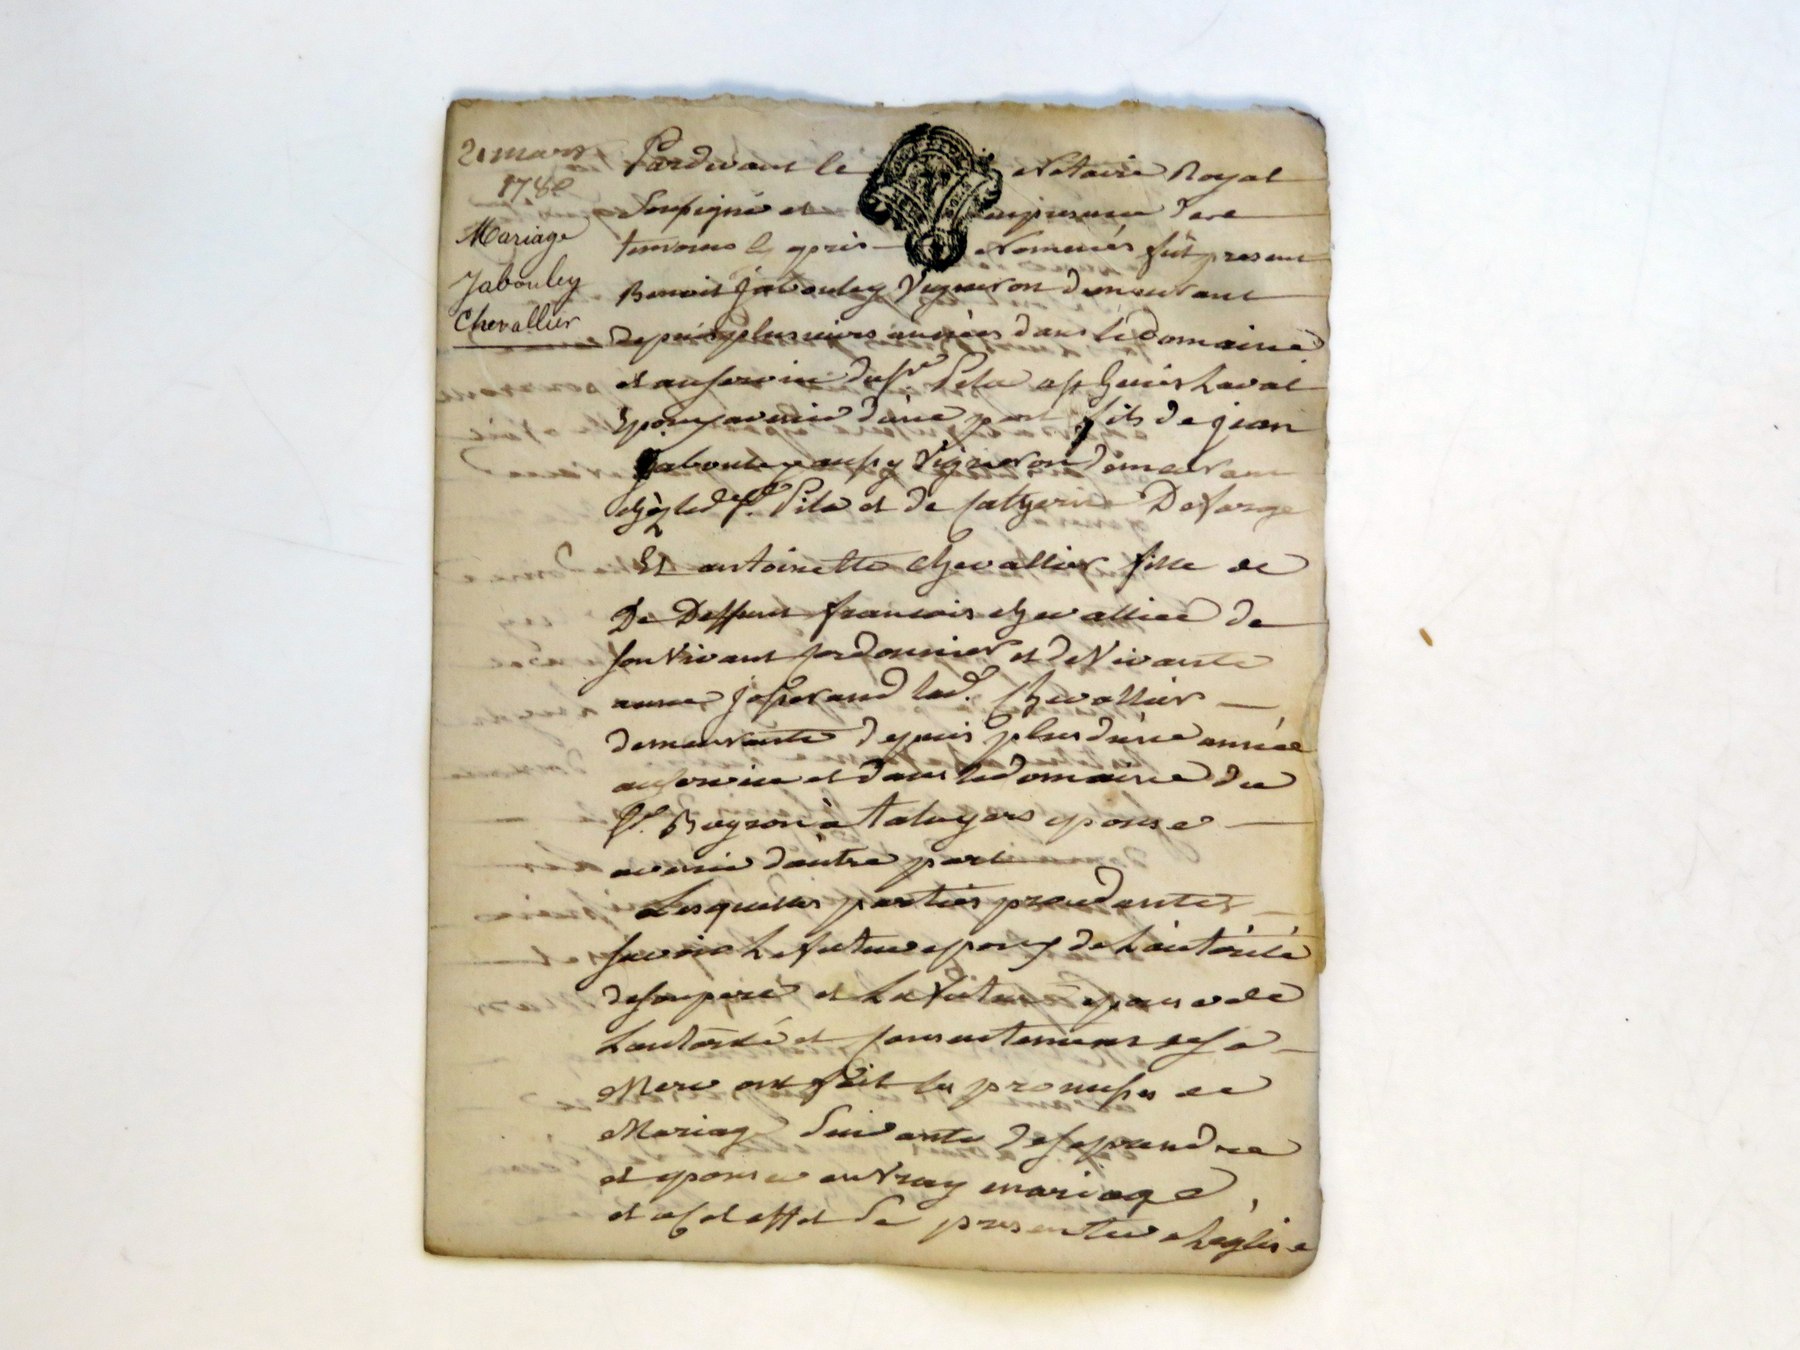 21 mars
1780
Mariage
Jabouley
Chevallier
Pardevant le Notaire Royal
Soussigné et en presence des
temoins cy aprés Nommés fut present
Benoit Jabouley Vigneron demeurant
depuis plusieurs années dans le domaine
et au service du Sr Pila a St genis Laval
Epoux avenir d'une part fils de jean
Jabouley aussy Vigneron demeurant
chèz led. Sr. Pila et de Catherine Deforge
Et antoinette chevallier fille de
De Deffunt francois chevallier de
son Vivant cordonnier et de Vivante
anne lad. Chevallier
demeurante depuis plus d'une année
au service et dans le domaine du
Sr. Boyron à taluyers epouse
avenir d'autre part
Lesquelles parties procedantes
savoir Le futur epoux de L'autorité
de son pere et La future epouse de
L'autorité et consentement de sa
Mere ont fait les promesses de
Mariage Suivantes de se prendre
et epouser en vray mariage,
et a cet effet se presenter a L'eglise